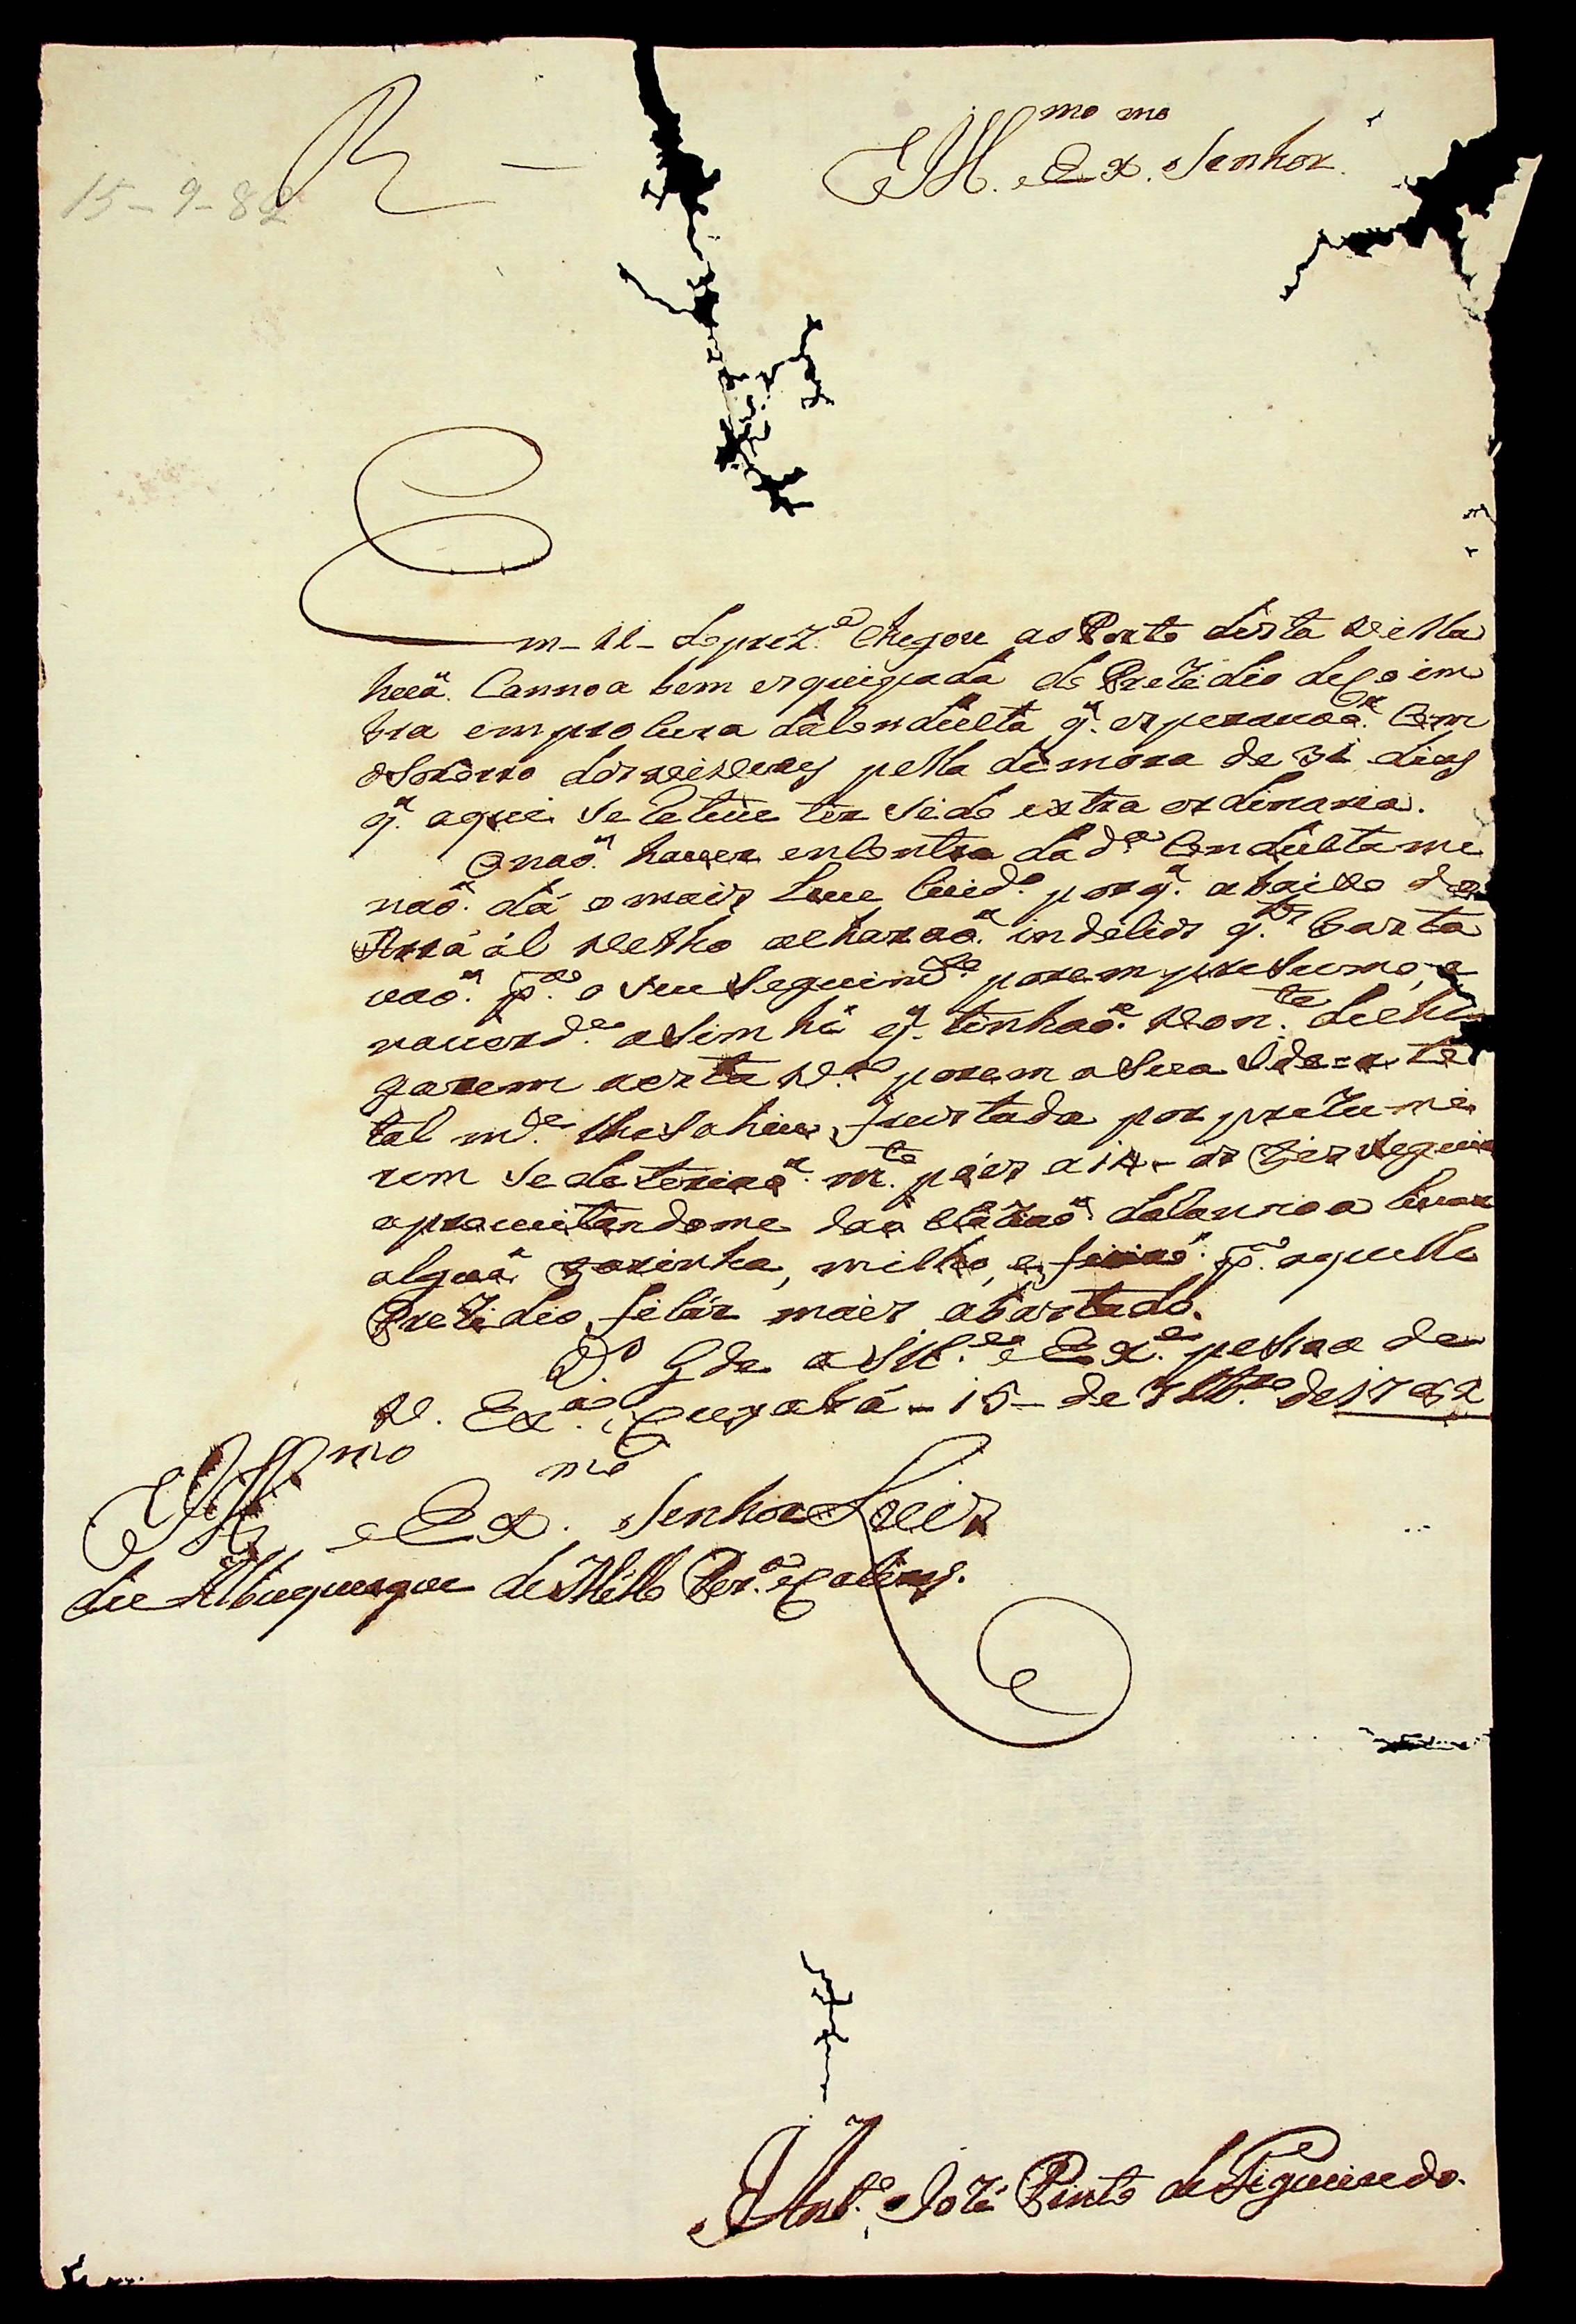 15-9-82
R
Ill.mo e Ex.mo Senhor
Em - 11 - do prez.e chegou ao Porto desta Villa
huã Cannoa bem esquipada do Prezidio de Coim
bra em procura da Conducta q. esperavaõ Com
o Socorro dos viveres pella demora de 31 dias
q. aqui se deteve ter sido extra ordinaria.
O naõ haver encontrado a d.a Conducta me
naõ dá o mais leve cuid.o porq. abaixo do
Arraál Velho acharaõ indicios q. Corta
vaõ p.a o seu Seguim.to porem presumo, e
na verd.e asim hé q. tinhaõ von.te de che
garem a esta V.a porem a sua
tal m.de lhe sahiu frustada por prezumi
rem se deteriaõ m.to pois a 14 - os fis seguir
aproveitandome da ocaziaõ da Cannoa levar
alguã farinha, milho, e feijaõ p.a aquelle
Prezidio, ficár mais abastado.
D.s G.de a Ill.ma e Ex.ma pessoa de
V. Ex.a Cuyabá - 15 - de 7br.o de 1782
Ill.mo e Ex.mo Senhor Luis
de Albuquerque de Mello Per.a e Caceres.
Ant.o Jozé Pinto de Figueiredo.